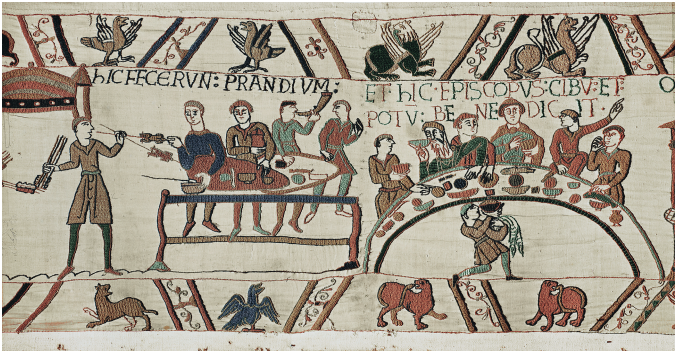 hIC FECERVN: PRANDIVM:
ET hIC·EPISCOPVS:CIBV̄:ET·
POTV̄: BE NE DIC IT·